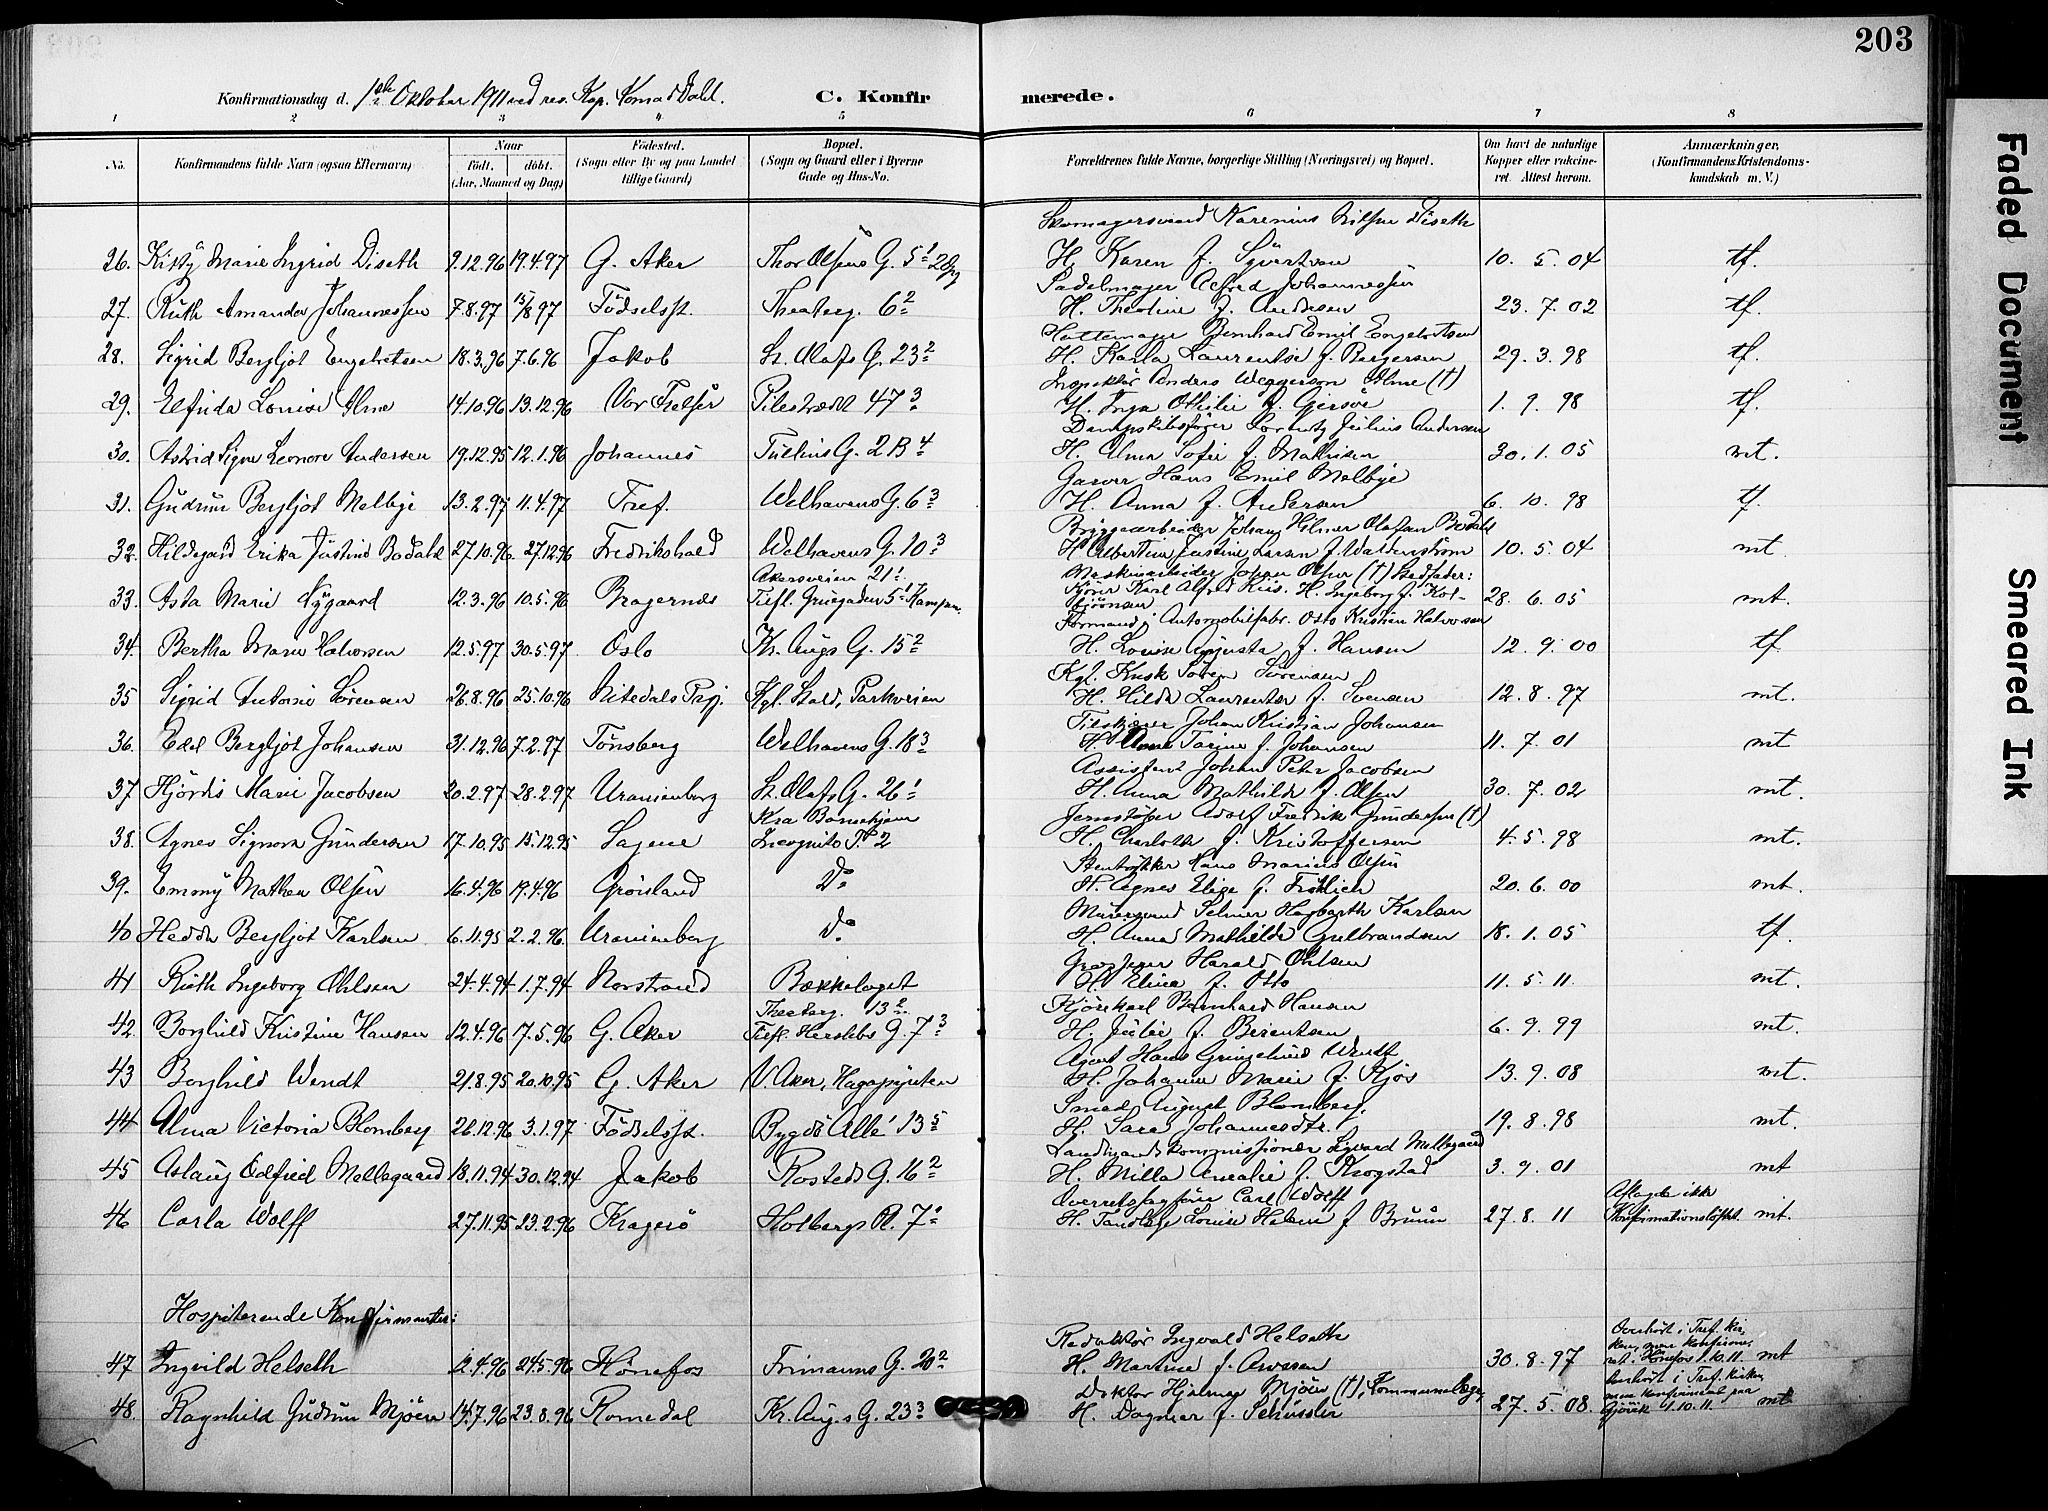 203
Konfirmationsdag d. 1ste Oktober 1911 ved res. Kap. Konrad Dahl. C. Konfirmerede.
1 2 3 4 5 6 7 8
No. Konfirmandens fulde Navn (ogsaa Efternavn) Naar født. døbt. (Aar, Maaned og Dag) Fødested. (Sogn eller By og paa Landet tillige Gaard) Bopæl. (Sogn og Gaard eller i Byerne Gade og Hus-No. Forældrenes fulde Navne, borgerlige Stilling (Næringsvei) og Bopæl. Om havt de naturlige Kopper eller vakcineret. Attest herom. Anmærkninger. (Konfirmandens Kristendomskundskab m. V.)
Skomagersvend Karenius Nilsen Diseth
26. Kitty Marie Ingrid Diseth 9.12.96 19.4.97 G. Aker Thor Olsens G. 5 H. Karen f. Syvertsen 10. 5. 04 tf.
Sadelmager Alfred Johannessen
27. Ruth Amanda Johannessen 7.8.97 15/8 97 Födselsst. Theaterg. 6 2 H. Theoline f. Andersen 23. 7. 02 tf.
Hattemager Bernhard Emil Engebretsen
28. Sigrid Bergljot Engebretsen 18.3.96 7.6.96 Jakob St. Olafs G. 23 2 H. Karla Laurentse f. Bergersen 29. 3. 98 tf.
Inspektör Anders Weggerson Alme (†)
29. Elfrida Louise Alme 14.10.96 13.12.96 Vor Frelser Pilestrædet 47 3 H. Inga Othilie f. Gjersöe 1. 9. 98 tf.
Dampskibsförer Lorentz Julius Andersen
30. Astrid Signe Leonore Andersen 19.12.95 12.1.96 Johannes Tullins G. 2 B 4 H. Alma Sofie f. Mathisen 30. 1. 05 mt.
Garver Hans Emil Melbye
31. Gudrun Bergljot Melbye 13.2.97 11.4.97 Tref. Welhavens G. 6 3 H. Anna f. Andersen 6. 10. 98 tf.
Bryggearbeider Johan Hilmer Olafsen Bodahl
32. Hildegard Erika Justine Bodahl 27.10.96 27.12.96 Fredrikshald Welhavens G. 10 3 H. Albertine Justine Larsen f. Waldenström 10. 5. 04 mt.
Akersveien 21 1 Maskinarbeider Johan Olsen (†) Stedfader:
33. Asta Marie Nygaard 12.3.96 10.5.96 Bragernæs Tilfl. Gruegaden 5 1 Kampen. Kjörer Karl Alfred Riis. H. Ingeborg f. Kolbjörnsen 28. 6. 05 mt.
Formand i Automobilfabr. Otto Kristian Halvorsen
34. Bertha Marie Halvorsen 12.5.97 30.5.97 Oslo Kr. Augs G. 15 2 H. Louise Augusta f. Hansen 12. 9. 00 tf
Kgl. Kusk Sören Sörensen
35 Sigrid Antonie Sörensen 26.8.96 25.10.96 Nitedals Prgj. Kgl. Stald, Parkveien H. Hilda Laurentse f. Svensen 12. 8. 97 mt.
Tilskjærer Johan Kristian Johansen
36. Edel Bergljot Johansen 31.12.96 7.2.97 Tönsberg Welhavens G. 18 3 H. Anna Tarine f. Johansen 11. 7. 01 mt
Assistent Johan Peter Jacobsen
37 Hjördis Marie Jacobsen 20.2.97 28.2.97 Uranienborg St. Olafs G. 26 1 H. Anna Mathilde f. Olsen 30. 7. 02 mt.
Kra Börnehjem Jernstöber Adolf Fredrik Gundersen (†)
38. Agnes Signora Gundersen 17.10.95 15.12.95 Sagene Incognito T. 2 H. Charlotte f. Kristoffersen 4. 5. 98 mt.
Stentrykker Hans Marius Olsen
39. Emmy Mathea Olsen 16.4.96 19.4.96 Grönland Do H. Agnes Elise G. Frölich 20. 6. 00 mt.
Murersvend Selmer Hagbarth Karlsen
40 Hedda Bergljot Karlsen 6.11.95 2.2.96 Uranienborg do H. Anna Mathilde Gulbrandsen 18. 1. 05 tf.
Grosserer Harald Ohlsen
41 Ruth Ingeborg Ohlsen 24.4.94 1.7.94 Norstrand Bækkelaget H. Elina f. Otto 11. 5. 11. mt.
Theaterg. 13 2 Kjörekarl Bernhard Hansen
42. Borghild Kristine Hansen 12.4.96 17.5.96 G. Aker Tilfl. Herslebs G. 7 3 H. Julie f. Berentsen 6. 9. 99 mt.
Agent Hans Wendt
43 Borghild Wendt 21.8.95 20.10.95 G. Aker V. Aker, H. Johanne Marie f. Kjös 13. 9. 08 mt.
Smed August Blomberg.
44 Alma Victoria Blomberg 26.12.96 3.1.97 Födselsst. Bygdö Allé 13 5 H. Sara Johannesdtr. 19. 8. 98 mt.
Landbrugskommissionær Sigvard Mellegaard
45 Aslaug Odfrid Mellegaard 18.11.94 30.12.94 Jakob Rosteds G. 16 2 H. Milla Amalie f. Krogstad 3. 9. 01 mt
Overretssagförer Carl Wolff Aflagde ikke
46 Carla Wolff 27.11.95 23.2.96 Kragerö Holbergs Pl. 7 H. Tandlæge Louise Helene f. Bruun 27. 8. 11 Konfirmationslöftet. mt.
Hospiterende Konfirmanter:
Redaktör Ingvald Helseth Overhört i Tref. kirken, men konfirmeret i Hönefos 1.10.11.
47 Ingrid Helseth 12.4.96 24.5.96 Hönefos Frimanns G. 20 2 H. Martine f. 30. 8. 97 mt
Doktor Hjalmar Mjöen (†), Kommunelæge, Overhört i Tref. kirken, men konfirmeret paa Gjövik 1.10.11.
48. Ragnhild Gudrun Mjöen 14.7.96 23.8.96 Romedal Kr. Aug.s G. 23 3 H. Dagmar f. Schüssler 27. 5. 08. mt
Faded Document
Smeared Ink